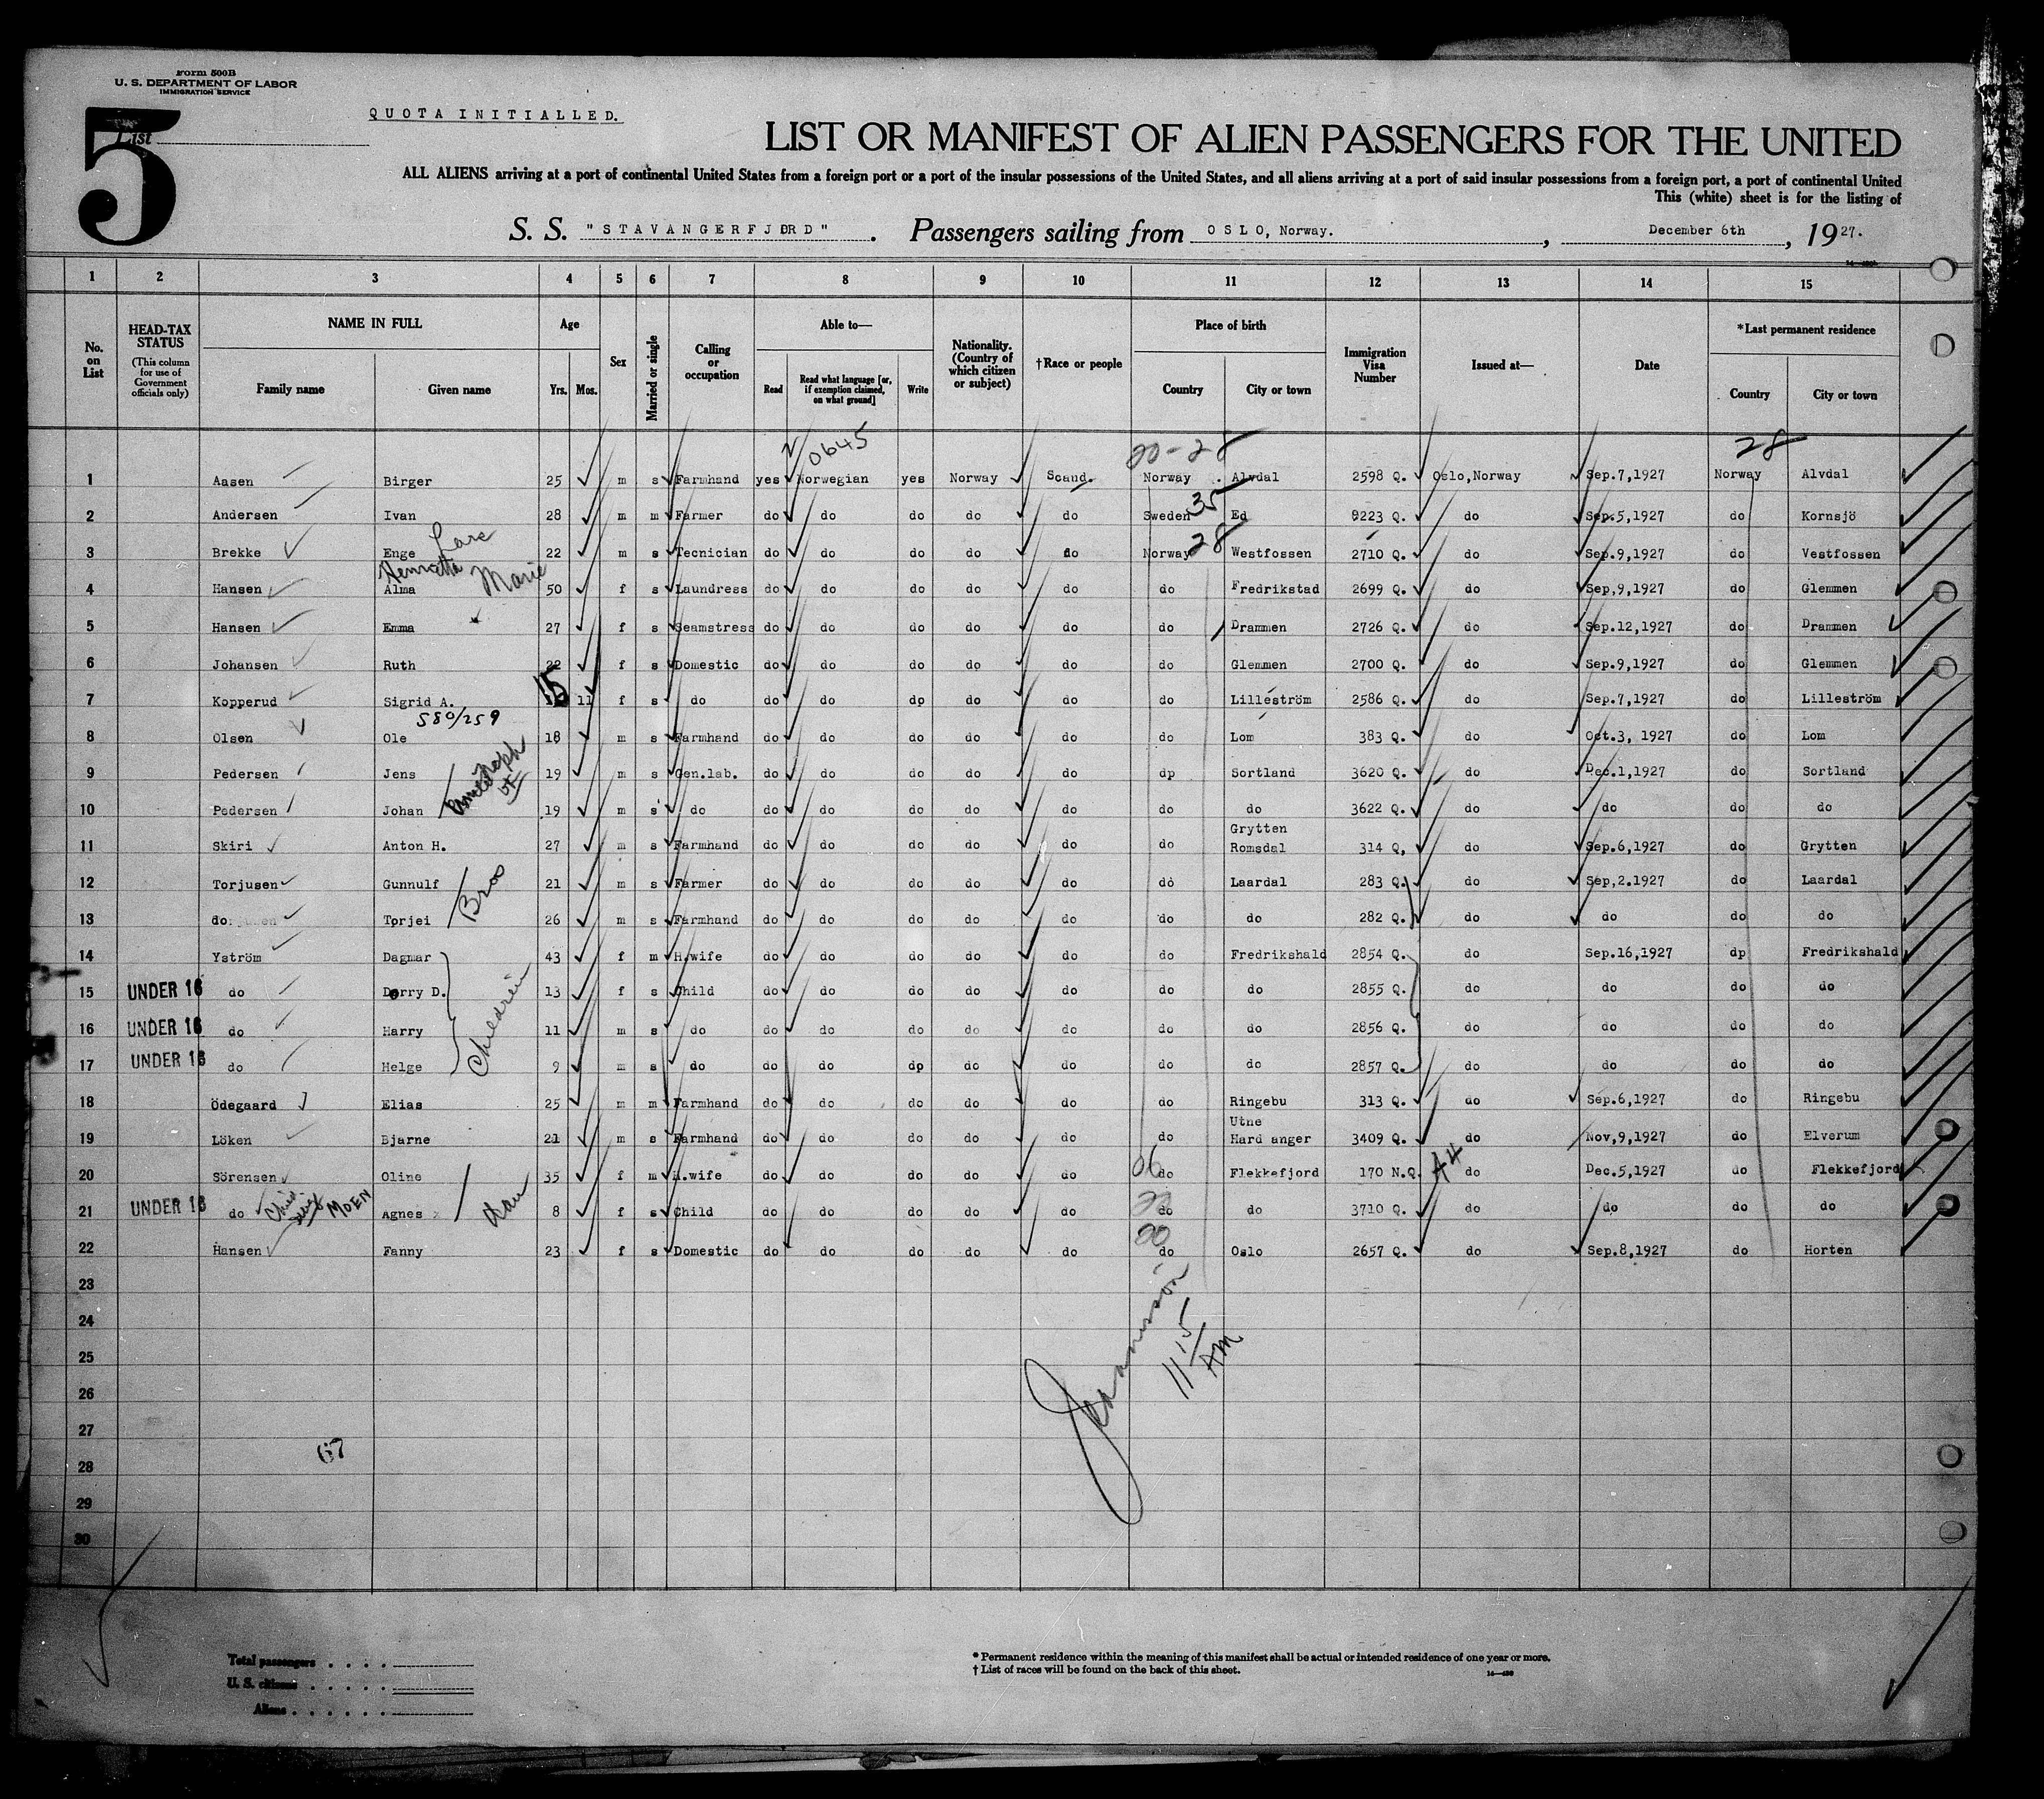 Form 500B
U. S. DEPARTMENT OF LABOR
IMMIGRATION SERVICE
5
List
QUOTA INITIALLED.
LIST OR MANIFEST OF ALIEN PASSENGERS FOR THE UNITED
ALL ALIENS arriving at a port of continental United States from a foreign port or a port of the insular possessions of the United States, and all aliens arriving at a port of said insular possessions from a foreign port, a port of continental United
This (white) sheet is for the listing of
S. S. "STAVANGERFJORD". Passengers sailing from OSLO, Norway. , December 6th , 1927.
1 2 3 4 5 6 7 8 9 10 11 12 13 14 15
No. on List
HEAD-TAX STATUS (This column for use of Government officials only)
NAME IN FULL Family name Given name
Age Yrs. Mos.
Sex
Married or single
Calling or occupation
Able to— Read Read what language [or, if exemption claimed, on what ground] Write
Nationality. (Country of which citizen or subject)
†Race or people
Place of birth Country City or town
Immigration Visa Number
Issued at—
Date
*Last permanent residence Country City or town
0645 20-28 28
1 Aasen Birger 25 m s Farmhand yes Norwegian yes Norway Scand. Norway Alvdal 2598 Q. Oslo,Norway Sep.7,1927 Norway Alvdal
35
2 Andersen Ivan 28 m m Farmer do do do do do Sweden Ed 9223 Q. do Sep.5,1927 do Kornsjö
Lare 28
3 Brekke Enge 22 m s Tecnician do do do do do Norway Westfossen 2710 Q. do Sep.9,1927 do Vestfossen
Henrietta Marie
4 Hansen Alma 50 f s Laundress do do do do do do Fredrikstad 2699 Q. do Sep,9,1927 do Glemmen
5 Hansen Emma 27 f s Seamstress do do do do do do Drammen 2726 Q. do Sep.12,1927 do Drammen
6 Johansen Ruth 22 f s Domestic do do do do do do Glemmen 2700 Q. do Sep.9,1927 do Glemmen
7 Kopperud Sigrid A. 15 11 f s do do do dp do do do Lilleström 2586 Q. do Sep.7,1927 do Lilleström
580/259
8 Olsen Ole 18 m s Farmhand do do do do do do Lom 383 Q. do Oct.3, 1927 do Lom
9 Pedersen Jens 19 m s Gen.lab. do do do do do dp Sortland 3620 Q. do Dec.1,1927 do Sortland
10 Pedersen Johan 19 m s do do do do do do do do 3622 Q. do do do do
Grytten
11 Skiri Anton H. 27 m s Farmhand do do do do do do Romsdal 314 Q, do Sep.6,1927 do Grytten
12 Torjusen Gunnulf 21 m s Farmer do do do do do do Laardal 283 Q. do Sep,2.1927 do Laardal
Bros
13 do Torjei 26 m s Farmhand do do do do do do do 282 Q. do do do do
14 Yström Dagmar 43 f m H.wife do do do do do do Fredrikshald 2854 Q. do Sep.16,1927 dp Fredrikshald
15 UNDER 16 do Dorry D. 13 f s Child do do do do do do do 2855 Q. do do do do
Children
16 UNDER 16 do Harry 11 m s do do do do do do do do 2856 Q. do do do do
17 UNDER 16 do Helge 9 m s do do do dp do do do do 2857 Q. do do do do
18 Ödegaard Elias 25 m m Farmhand do do do do do do Ringebu 313 Q. do Sep.6,1927 do Ringebu
Utne
19 Löken Bjarne 21 m s Farmhand do do do do do do Hard anger 3409 Q. do Nov,9,1927 do Elverum
06 A4
20 Sörensen Oline 35 f m H.wife do do do do do do Flekkefjord 170 N.Q. do Dec.5,1927 do Flekkefjord
21 UNDER 16 do MOEN Agnes x 8 f s Child do do do do do do do 3710 Q. do do do do
22 Hansen Fanny 23 f s Domestic do do do do do do Oslo 2657 Q. do Sep.8,1927 do Horten
23
24
25
11 15 AM
26
27
67
28
29
30
Total passengers
U. S. citizens
Aliens
* Permanent residence within the meaning of this manifest shall be actual or intended residence of one year or more.
† List of races will be found on the back of this sheet.